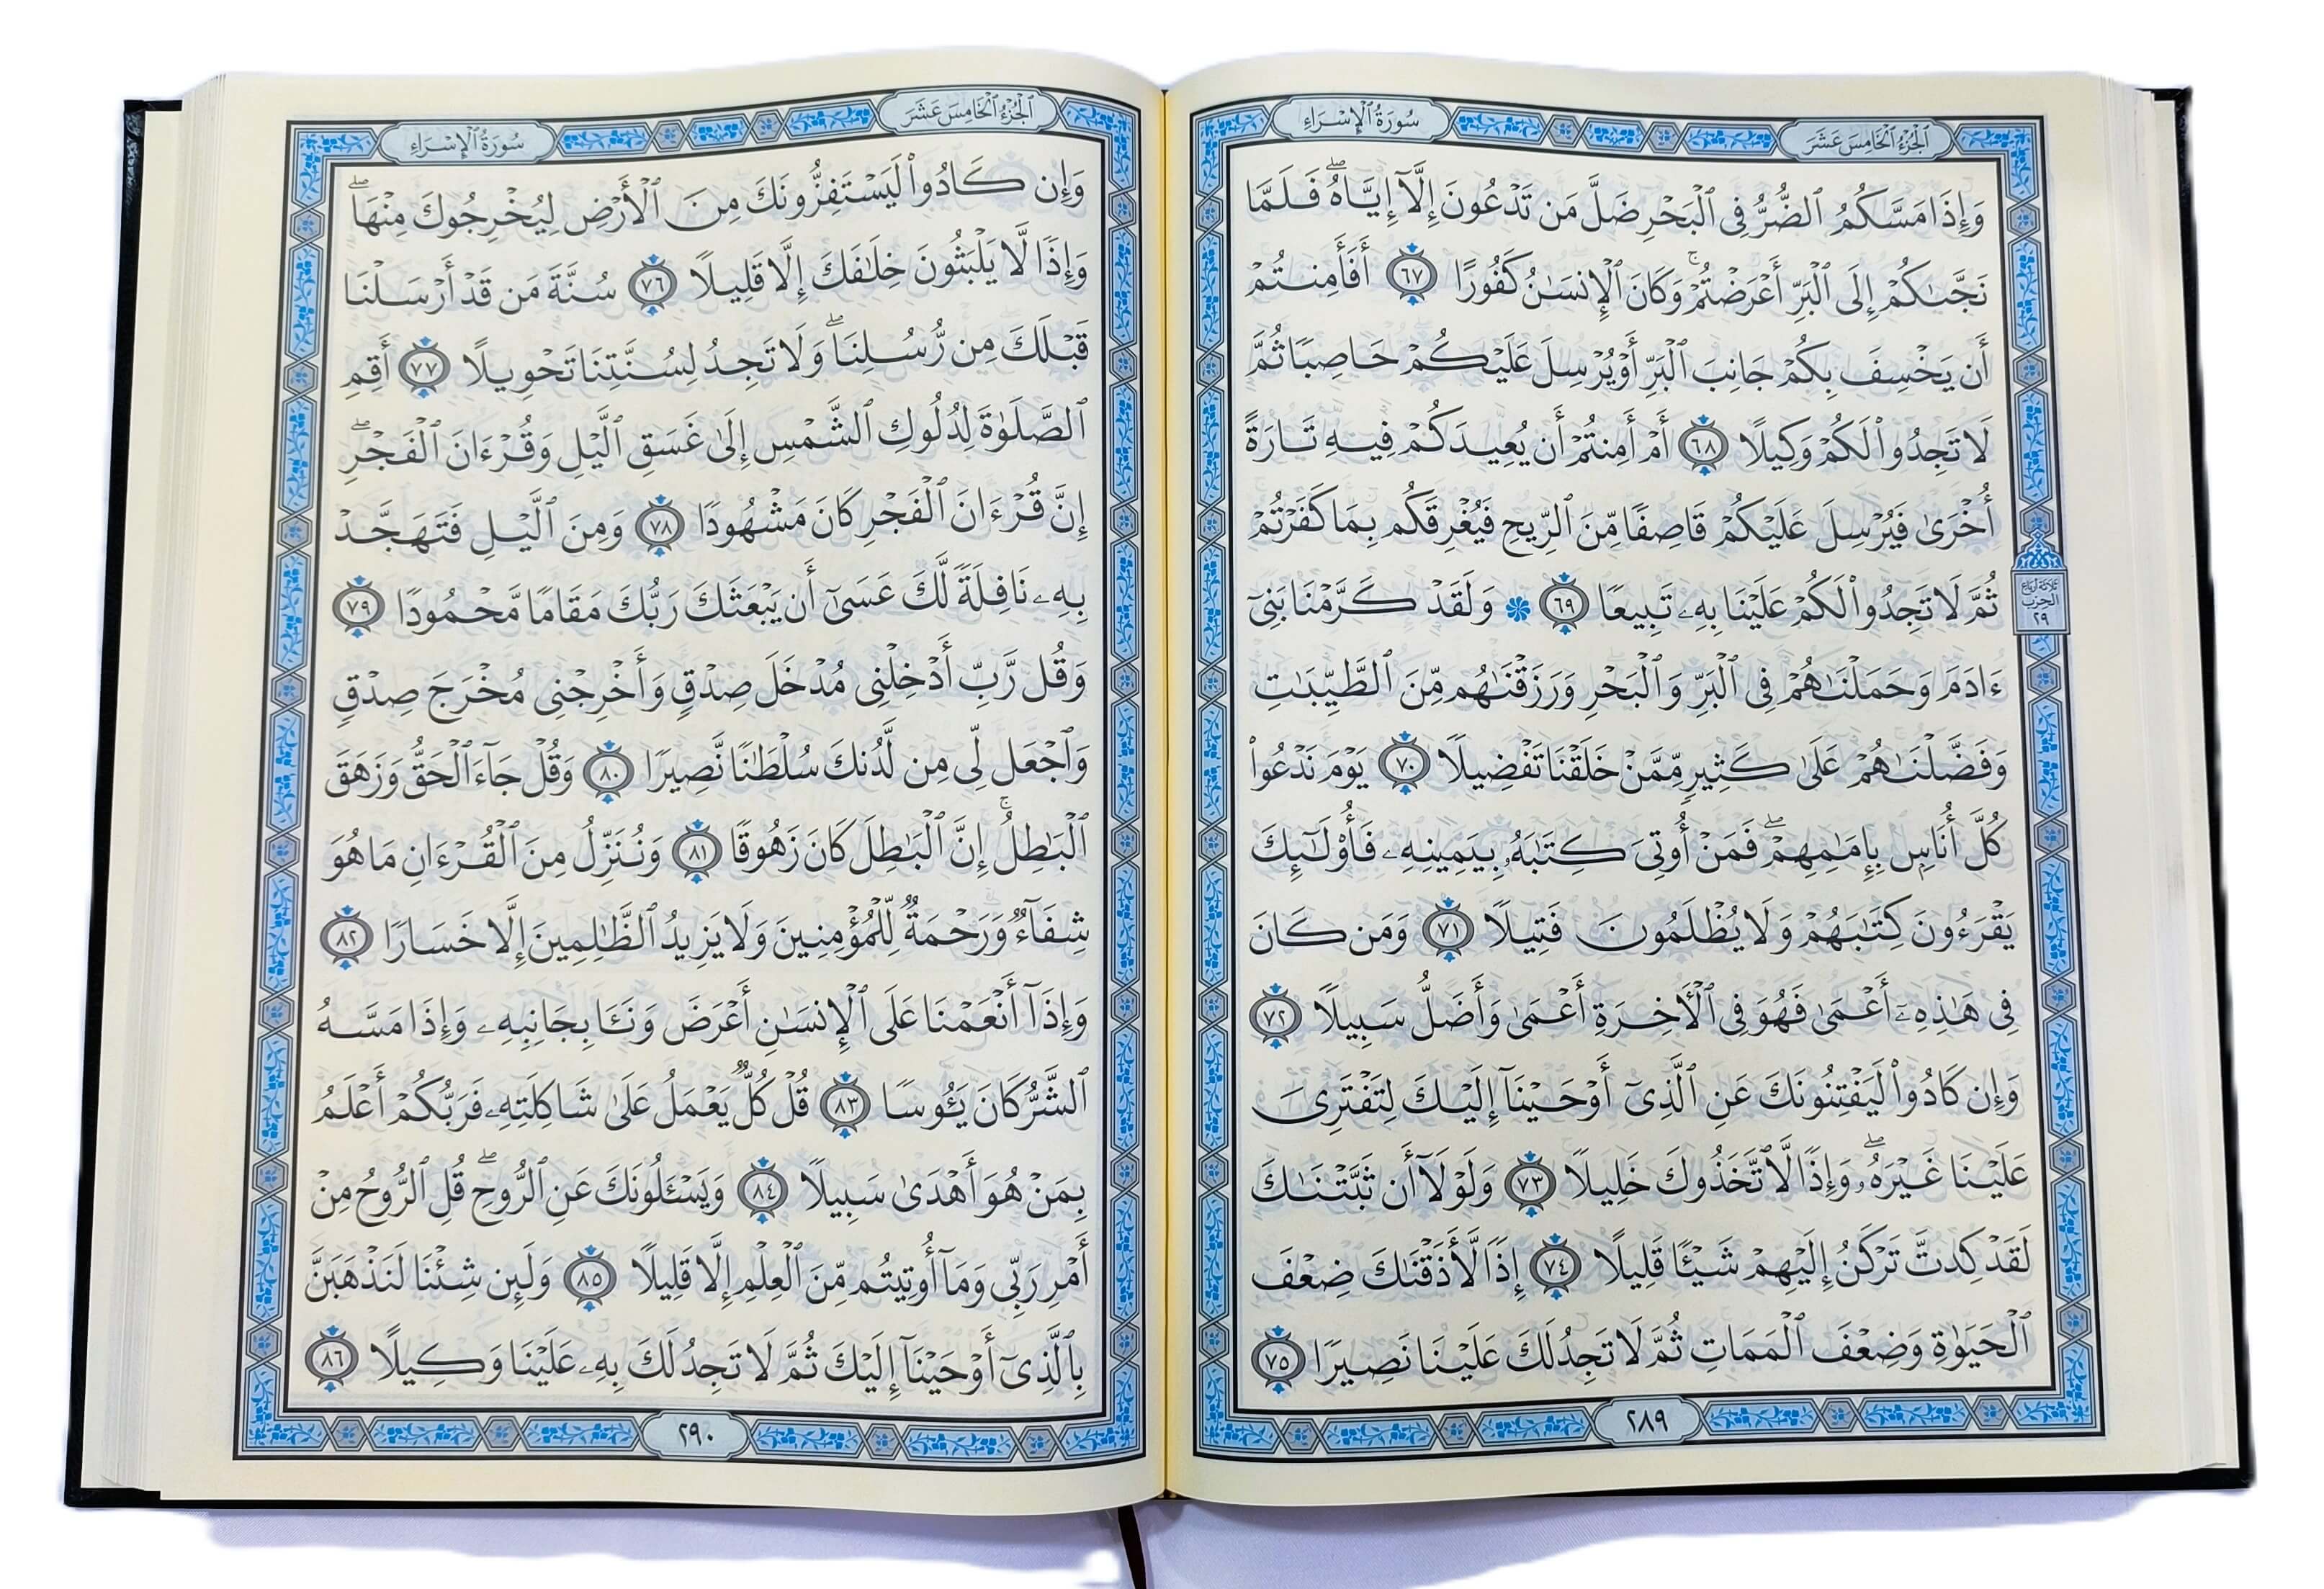 الجُزْءُ الخَامِسَ عَشَرَ
سُورَةُ الإِسْرَاءِ
وَإِذَا مَسَّكُمُ ٱلضُّرُّ فِى ٱلْبَحْرِ ضَلَّ مَن تَدْعُونَ إِلَّآ إِيَّاهُۖ فَلَمَّا
نَجَّىٰكُمْ إِلَى ٱلْبَرِّ أَعْرَضْتُمْۚ وَكَانَ ٱلْإِنسَـٰنُ كَفُورًا ٦٧ أَفَأَمِنتُمْ
أَن يَخْسِفَ بِكُمْ جَانِبَ ٱلْبَرِّ أَوْ يُرْسِلَ عَلَيْكُمْ حَاصِبًا ثُمَّ
لَا تَجِدُوا۟ لَكُمْ وَكِيلًا ٦٨ أَمْ أَمِنتُمْ أَن يُعِيدَكُمْ فِيهِ تَارَةً
أُخْرَىٰ فَيُرْسِلَ عَلَيْكُمْ قَاصِفًا مِّنَ ٱلرِّيحِ فَيُغْرِقَكُم بِمَا كَفَرْتُمْ
ثُمَّ لَا تَجِدُوا۟ لَكُمْ عَلَيْنَا بِهِۦ تَبِيعًا ٦٩ ۞ وَلَقَدْ كَرَّمْنَا بَنِىٓ
ءَادَمَ وَحَمَلْنَـٰهُمْ فِى ٱلْبَرِّ وَٱلْبَحْرِ وَرَزَقْنَـٰهُم مِّنَ ٱلطَّيِّبَـٰتِ
وَفَضَّلْنَـٰهُمْ عَلَىٰ كَثِيرٍ مِّمَّنْ خَلَقْنَا تَفْضِيلًا ٧٠ يَوْمَ نَدْعُوا۟
كُلَّ أُنَاسٍۭ بِإِمَـٰمِهِمْۖ فَمَنْ أُوتِىَ كِتَـٰبَهُۥ بِيَمِينِهِۦ فَأُو۟لَـٰٓئِكَ
يَقْرَءُونَ كِتَـٰبَهُمْ وَلَا يُظْلَمُونَ فَتِيلًا ٧١ وَمَن كَانَ
فِى هَـٰذِهِۦٓ أَعْمَىٰ فَهُوَ فِى ٱلْـَٔاخِرَةِ أَعْمَىٰ وَأَضَلُّ سَبِيلًا ٧٢
وَإِن كَادُوا۟ لَيَفْتِنُونَكَ عَنِ ٱلَّذِىٓ أَوْحَيْنَآ إِلَيْكَ لِتَفْتَرِىَ
عَلَيْنَا غَيْرَهُۥۖ وَإِذًا لَّٱتَّخَذُوكَ خَلِيلًا ٧٣ وَلَوْلَآ أَن ثَبَّتْنَـٰكَ
لَقَدْ كِدتَّ تَرْكَنُ إِلَيْهِمْ شَيْـًٔا قَلِيلًا ٧٤ إِذًا لَّأَذَقْنَـٰكَ ضِعْفَ
ٱلْحَيَوٰةِ وَضِعْفَ ٱلْمَمَاتِ ثُمَّ لَا تَجِدُ لَكَ عَلَيْنَا نَصِيرًا ٧٥
ثلاثة أرباع
الحزب
٢٩
٢٨٩
الجُزْءُ الخَامِسَ عَشَرَ
سُورَةُ الإِسْرَاءِ
وَإِن كَادُوا۟ لَيَسْتَفِزُّونَكَ مِنَ ٱلْأَرْضِ لِيُخْرِجُوكَ مِنْهَاۖ
وَإِذًا لَّا يَلْبَثُونَ خِلَـٰفَكَ إِلَّا قَلِيلًا ٧٦ سُنَّةَ مَن قَدْ أَرْسَلْنَا
قَبْلَكَ مِن رُّسُلِنَاۖ وَلَا تَجِدُ لِسُنَّتِنَا تَحْوِيلًا ٧٧ أَقِمِ
ٱلصَّلَوٰةَ لِدُلُوكِ ٱلشَّمْسِ إِلَىٰ غَسَقِ ٱلَّيْلِ وَقُرْءَانَ ٱلْفَجْرِۖ
إِنَّ قُرْءَانَ ٱلْفَجْرِ كَانَ مَشْهُودًا ٧٨ وَمِنَ ٱلَّيْلِ فَتَهَجَّدْ
بِهِۦ نَافِلَةً لَّكَ عَسَىٰٓ أَن يَبْعَثَكَ رَبُّكَ مَقَامًا مَّحْمُودًا ٧٩
وَقُل رَّبِّ أَدْخِلْنِى مُدْخَلَ صِدْقٍ وَأَخْرِجْنِى مُخْرَجَ صِدْقٍ
وَٱجْعَل لِّى مِن لَّدُنكَ سُلْطَـٰنًا نَّصِيرًا ٨٠ وَقُلْ جَآءَ ٱلْحَقُّ وَزَهَقَ
ٱلْبَـٰطِلُۚ إِنَّ ٱلْبَـٰطِلَ كَانَ زَهُوقًا ٨١ وَنُنَزِّلُ مِنَ ٱلْقُرْءَانِ مَا هُوَ
شِفَآءٌ وَرَحْمَةٌ لِّلْمُؤْمِنِينَ وَلَا يَزِيدُ ٱلظَّـٰلِمِينَ إِلَّا خَسَارًا ٨٢
وَإِذَآ أَنْعَمْنَا عَلَى ٱلْإِنسَـٰنِ أَعْرَضَ وَنَـَٔا بِجَانِبِهِۦ وَإِذَا مَسَّهُ
ٱلشَّرُّ كَانَ يَـُٔوسًا ٨٣ قُلْ كُلٌّ يَعْمَلُ عَلَىٰ شَاكِلَتِهِۦ فَرَبُّكُمْ أَعْلَمُ
بِمَنْ هُوَ أَهْدَىٰ سَبِيلًا ٨٤ وَيَسْـَٔلُونَكَ عَنِ ٱلرُّوحِۖ قُلِ ٱلرُّوحُ مِنْ
أَمْرِ رَبِّى وَمَآ أُوتِيتُم مِّنَ ٱلْعِلْمِ إِلَّا قَلِيلًا ٨٥ وَلَئِن شِئْنَا لَنَذْهَبَنَّ
بِٱلَّذِىٓ أَوْحَيْنَآ إِلَيْكَ ثُمَّ لَا تَجِدُ لَكَ بِهِۦ عَلَيْنَا وَكِيلًا ٨٦
٢٩٠